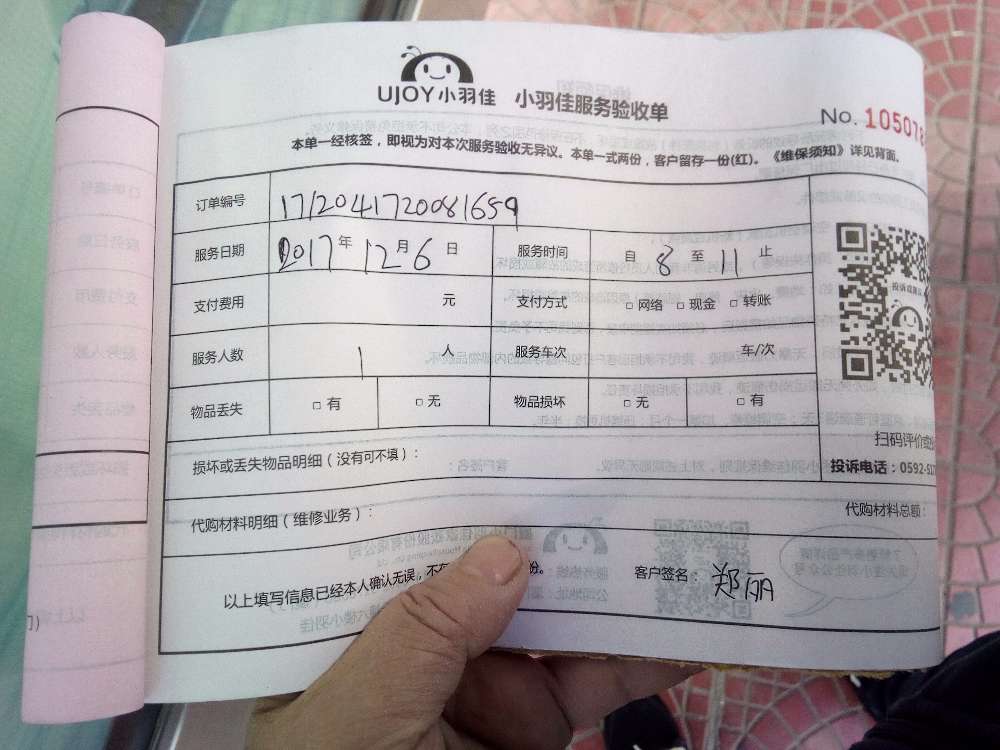 UJOY小羽佳 小羽佳服务验收单
No. 105078
本单一经核签，即视为对本次服务验收无异议。本单一式两份，客户留存一份(红)。《维保须知》详见背面。
订单编号 1712041720081659
服务日期 2017年12月6日 服务时间 自8至11止
支付费用 元 支付方式 □网络 □现金 □转账
投诉或建议
服务人数 1人 服务车次 车/次
物品丢失 □有 □无 物品损坏 □无 □有
扫码评价或
损坏或丢失物品明细（没有可不填）：
投诉电话：0592-5
代购材料明细（维修业务）： 代购材料总额：
以上填写信息已经本人确认无误，不 份。 客户签名：郑丽